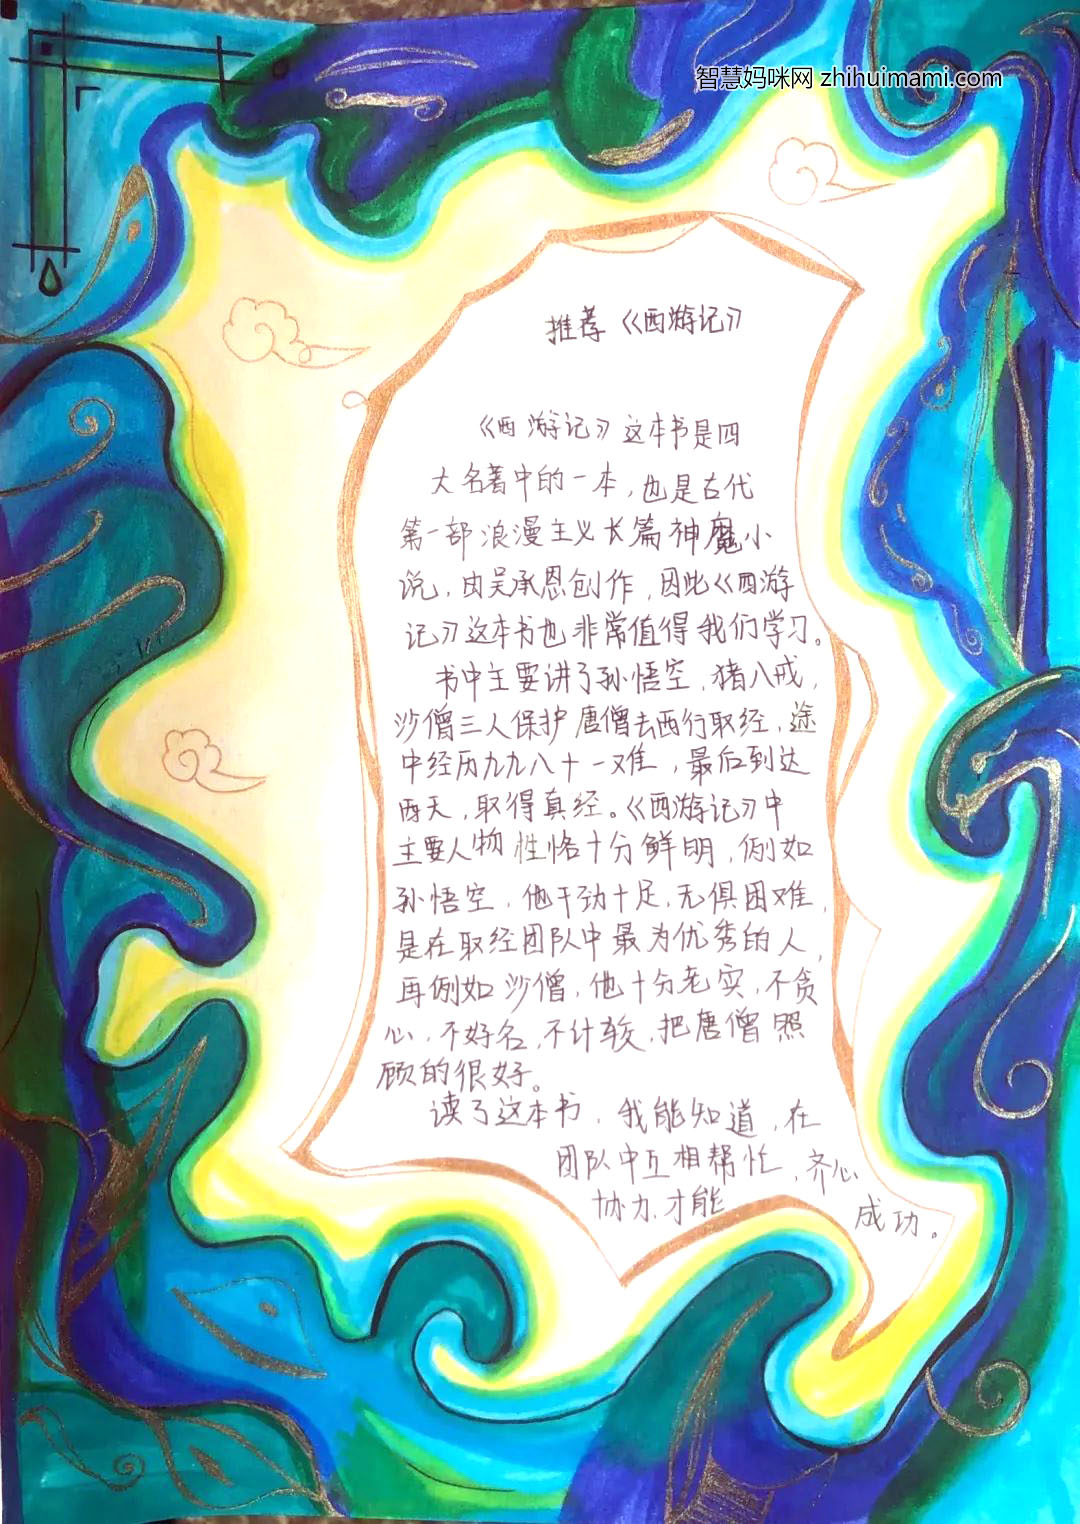 智慧妈咪网 zhihuimami.com
推荐《西游记》
《西游记》这本书是四
大名著中的一本，也是古代
第一部浪漫主义长篇神魔小
说，由吴承恩创作，因此《西游
记》这本书也非常值得我们学习。
书中主要讲了孙悟空，猪八戒，
沙僧三人保护唐僧去西行取经，途
中经历九九八十一难，最后到达
西天，取得真经。《西游记》中
主要人物性恪十分鲜明，例如
孙悟空，他干劲十足，无俱困难，
是在取经团队中最为优秀的人，
再例如沙僧，他十分老实，不贪
心，不好名，不计较，把唐僧照
顾的很好。
读了这本书，我能知道，在
团队中互相帮忙，齐心
协力，才能成功。